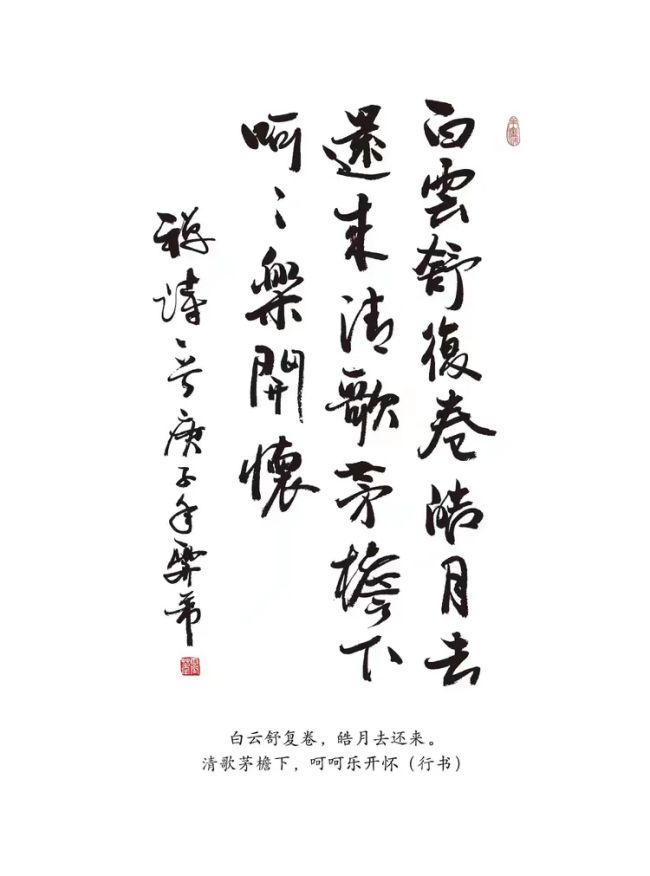 白雲舒復卷皓月去
還來清歌茅檐下
呵〻樂開懷
禪詩一首庚子年霽希
白云舒复卷，皓月去还来。
清歌茅檐下，呵呵乐开怀（行书）